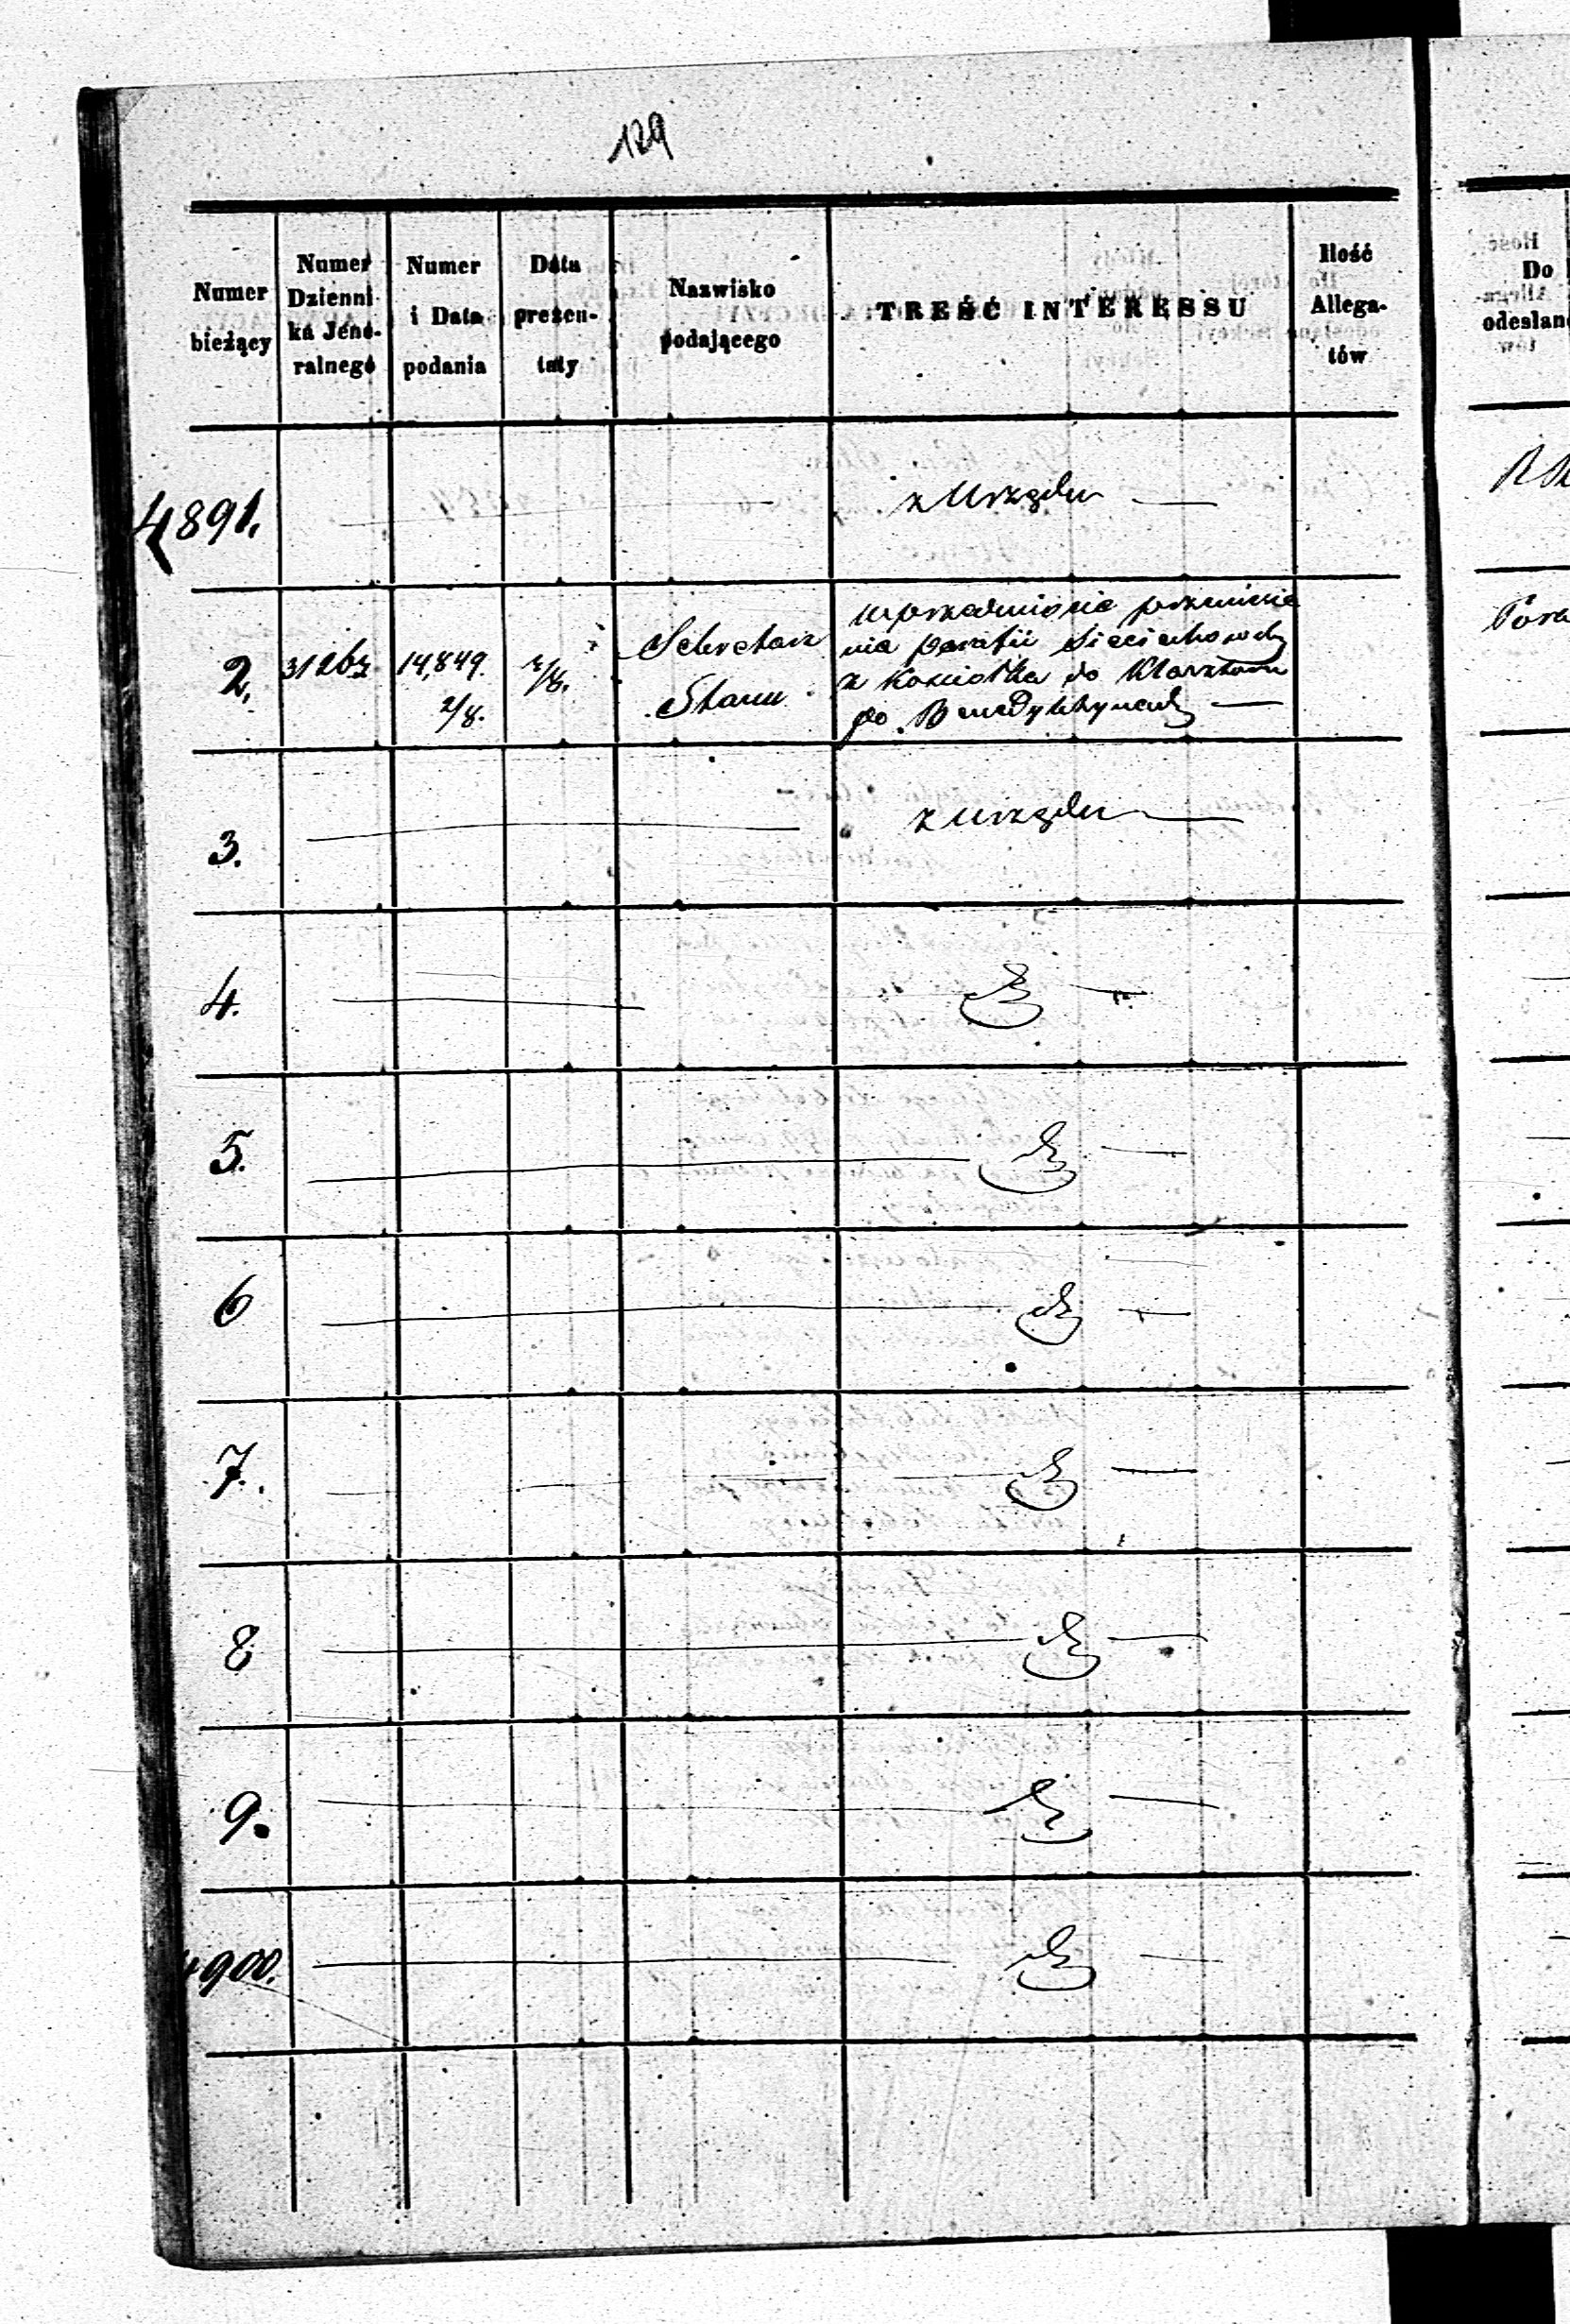 129
Numer
bieżący
Numer
Dzienni-
ka Jene-
ralnego
Numer
i Data
podania
Data
prezen-
taty
Nazwisko
podającego
TREŚĆ INTERESSU
Ilość
Allega-
tów
Do
odesłan
4891. z Urzędu —
2. 14,849. 2/8. 2/8. Sekretarz Stanu
w przedmiocie przeniesie
nia parafii Sieciechowskiej
z Kościołka do Klasztoru
po Benedyktynach —
3. z Urzędu —
4.
5.
6
7.
8
9.
4900.